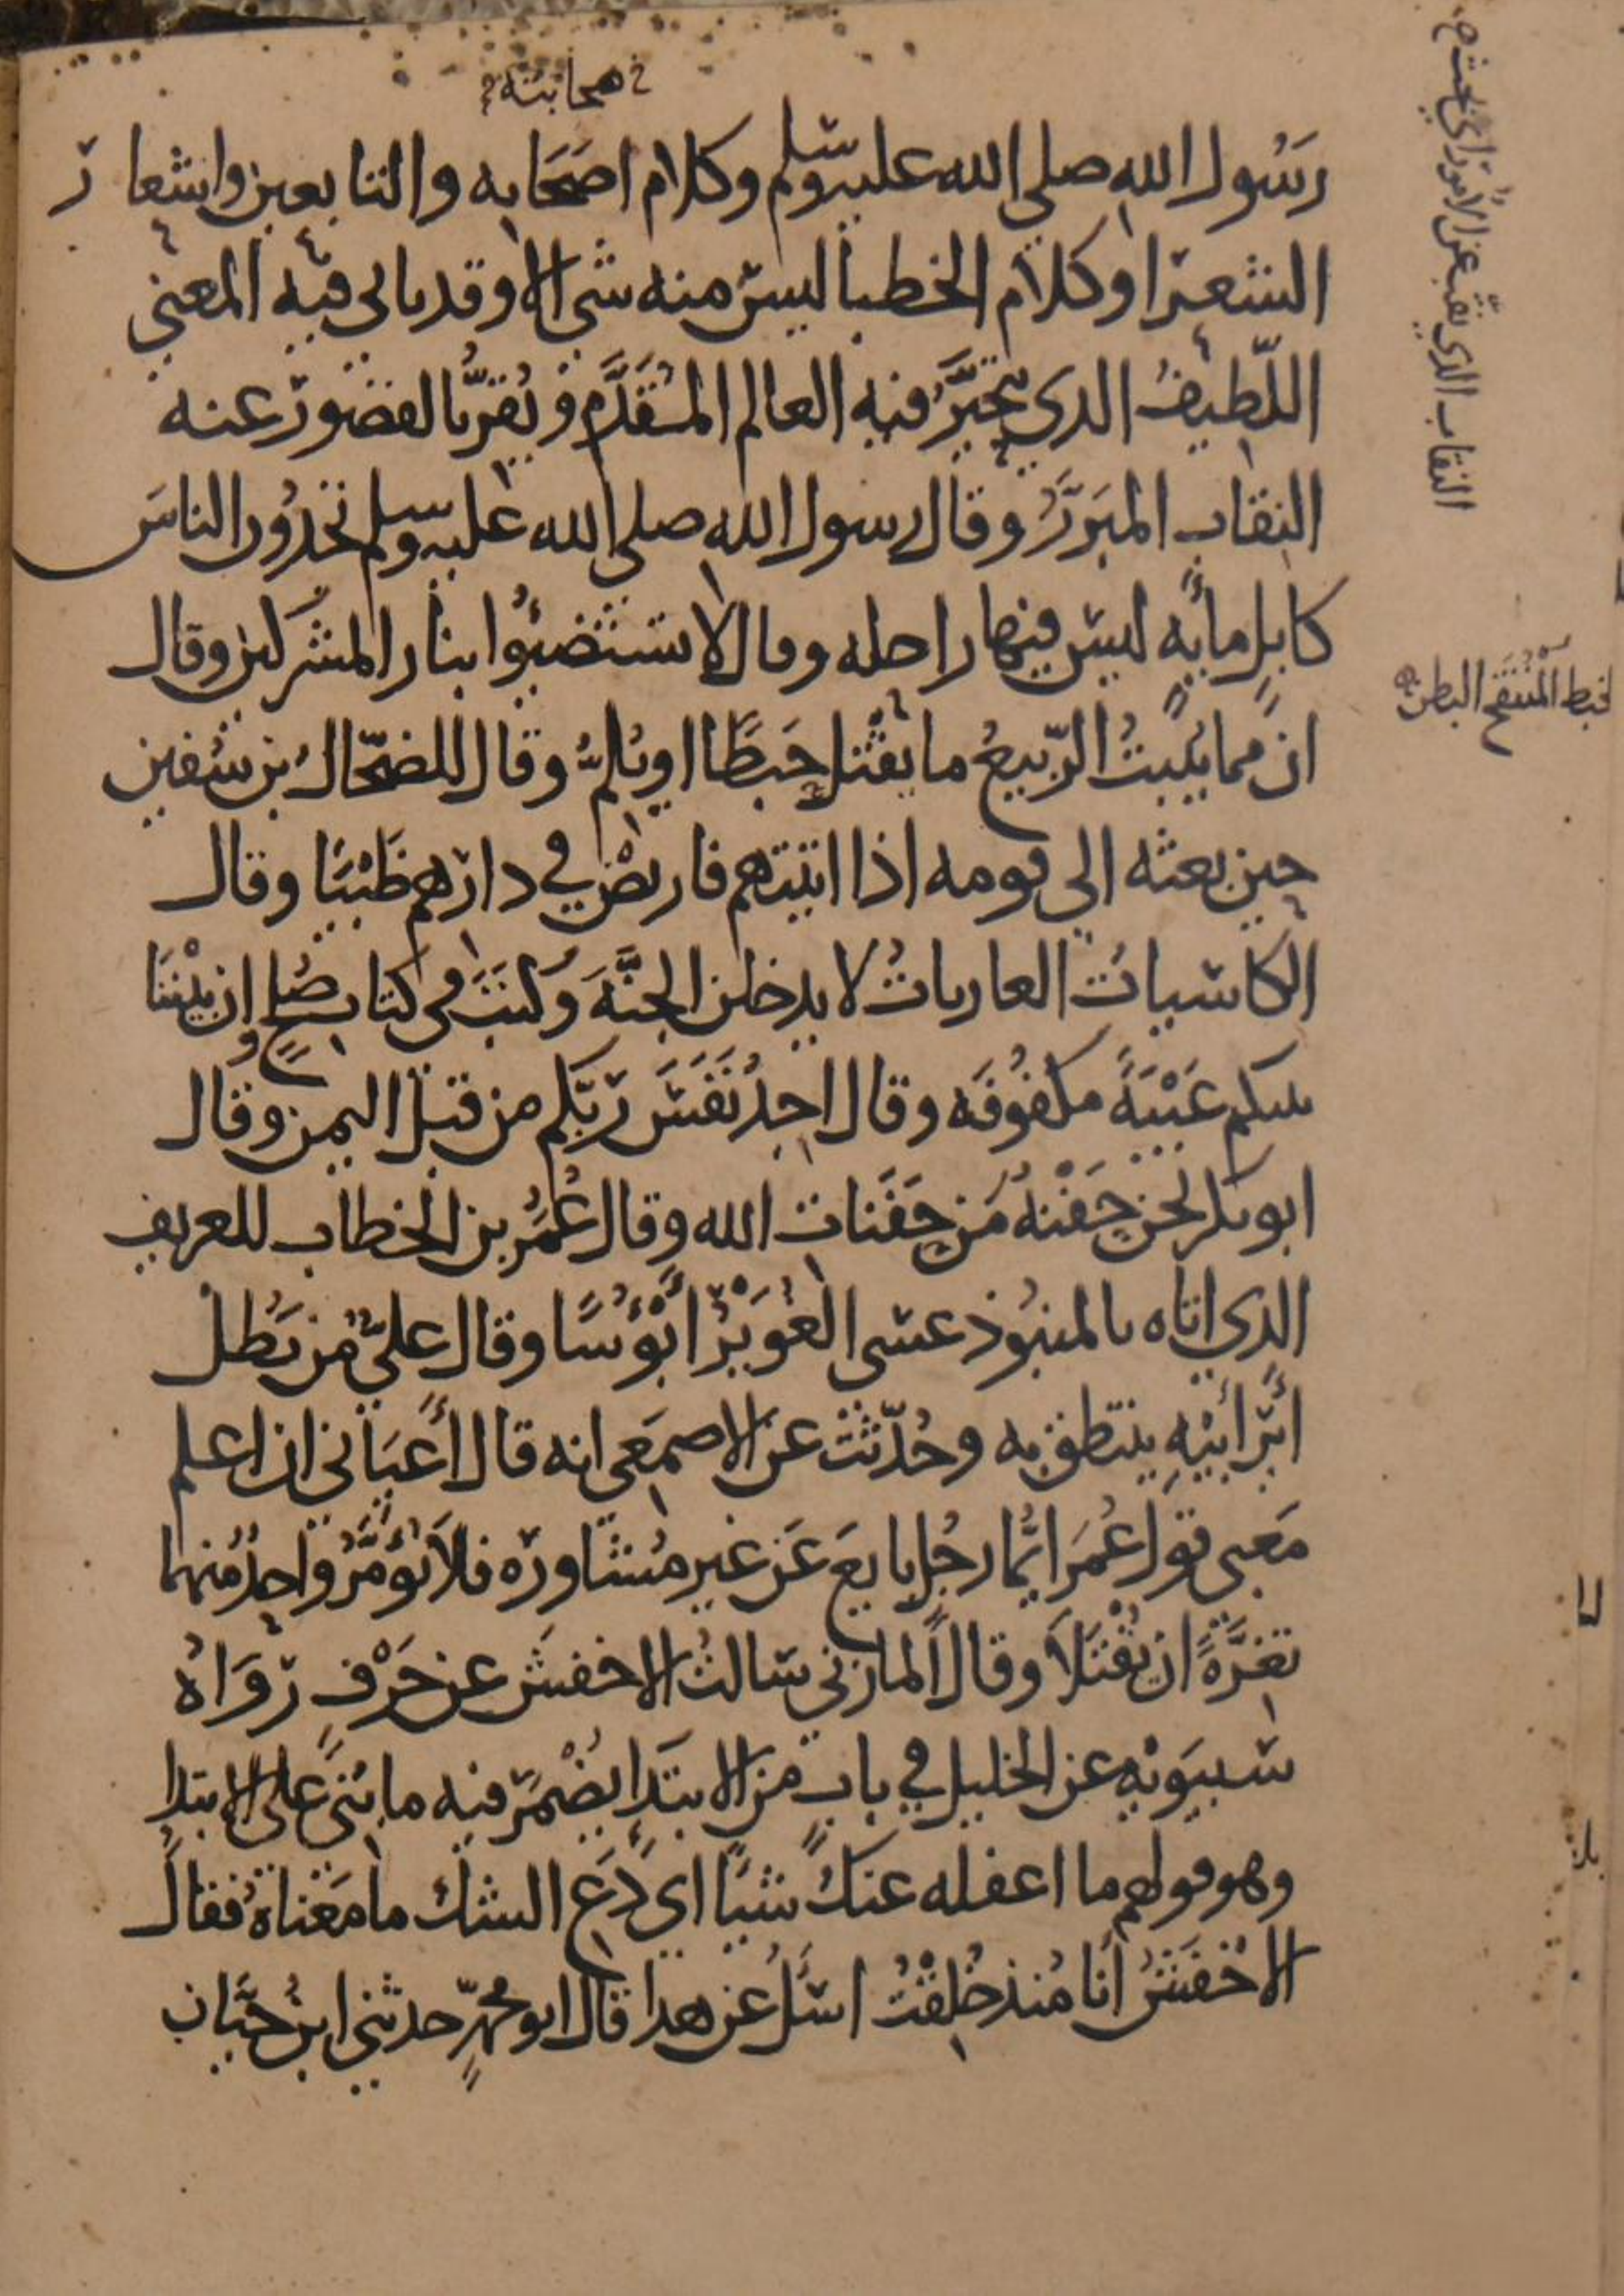 صحابته
رَسُول الله صلى الله عليه وسلم وكلام اصَحَابه والتابعين واشعار
الشعرا وكلام الخطبا ليس منه شى الا وقد ياتى فيه المعنى
اللّطيفُ الدي يتحيَّر فيه العالم المُتقَدَّم ويُقرُّ بالقصور عنه
النقاب المبَرّزُ وقال رسول الله صلى الله عليه وسلم تجدُون الناسَ
كابِلٍ مأيةٍ ليس فيها راحله وقال لا تستضيئُوا بنار المشركين وقال
انّ مما يُنبتُ الرّبيعُ ما يقتل حَبَطًا او يُلمُّ وقال للضحّاك بن سفين
حين بعثه الى قومه اذا اتيتهم فاربضْ في دارهم ظَبْيًا وقال
الكاسيات العاريات لا يدخلن الجنَّةَ وكتبَ في كتاب صُلحٍ وان بيْننَا
بينكم عَيْبَةً مكفُوفَه وقال اجِدُ نَفَسَ رَبّكم من قبل اليمن وقال
ابو بكر نحن حَفْنةٌ مَن حَفَنات الله وقال عُمَرُ بن الخطاب للعريف
الذي اتاه بالمنبُوذ عسى الغُوَيْرُ أَبْؤُسًا وقال عليّ مَن يَطُلْ
ايْرُ ابيْهِ ينتطق به وحُدّثت عن الاصمَعى انه قال أَعْيَانِي ان اعلم
مَعنى قول عُمَرَ ايُّما رجُلٍ بايعَ عَن غير مُشاورَه فلا يُؤمَّرُ واحِدٌ منهما
تغِرَّةً ان يُقْتَلاَ وقال المازني سَالتُ الاخفشَ عن حَرْفٍ رَوَاهُ
سيبَوَيْهِ عن الخليل في بابٍ من الابتدَا يُضْمَرُ فيه ما بُنَي على الابتدا
وهو قولهم ما اغفله عنكَ شيًا اى دَعِ الشك ما مَعْناهُ فقالَ
الاخْفَشُ أنا مُنذ خُلِقْتُ اسَلُ عن هدا قال ابو محمدٍ حدثنى ابنُ حَيَّان
النقاب الدى ينقب عن الامور اى يبحث
الحبط المُنْتَفَخ البطن